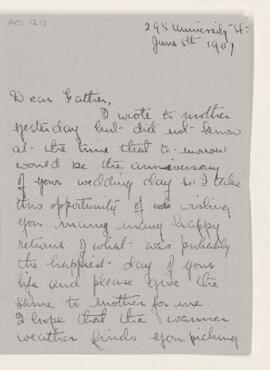 ACC 1212
295 University St.
June 5th 1907
Dear Father,
I wrote to mother
yesterday but did not know
at the time that to-morrow
would be the anniversary
of your wedding day so I take
this opportunity of wishing
you many many happy
returns of what was probably
the happiest day of your
life and please give the
same to mother for me.
I hope that the warmer
weather finds you picking